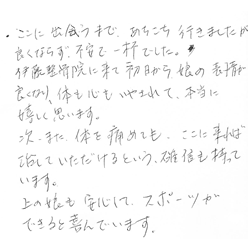 ・ここに出会うまで、あちこち行きましたが
良くならず、不安で一杯でした。
伊藤整骨院に来て初日から娘の表情が
良くなり、体も心もいやされて、本当に
嬉しく思います。
次、また、体を痛めても、ここに来れば
治していただけるという、確信も持って
います。
上の娘も安心して、スポーツが
できると喜んでいます。